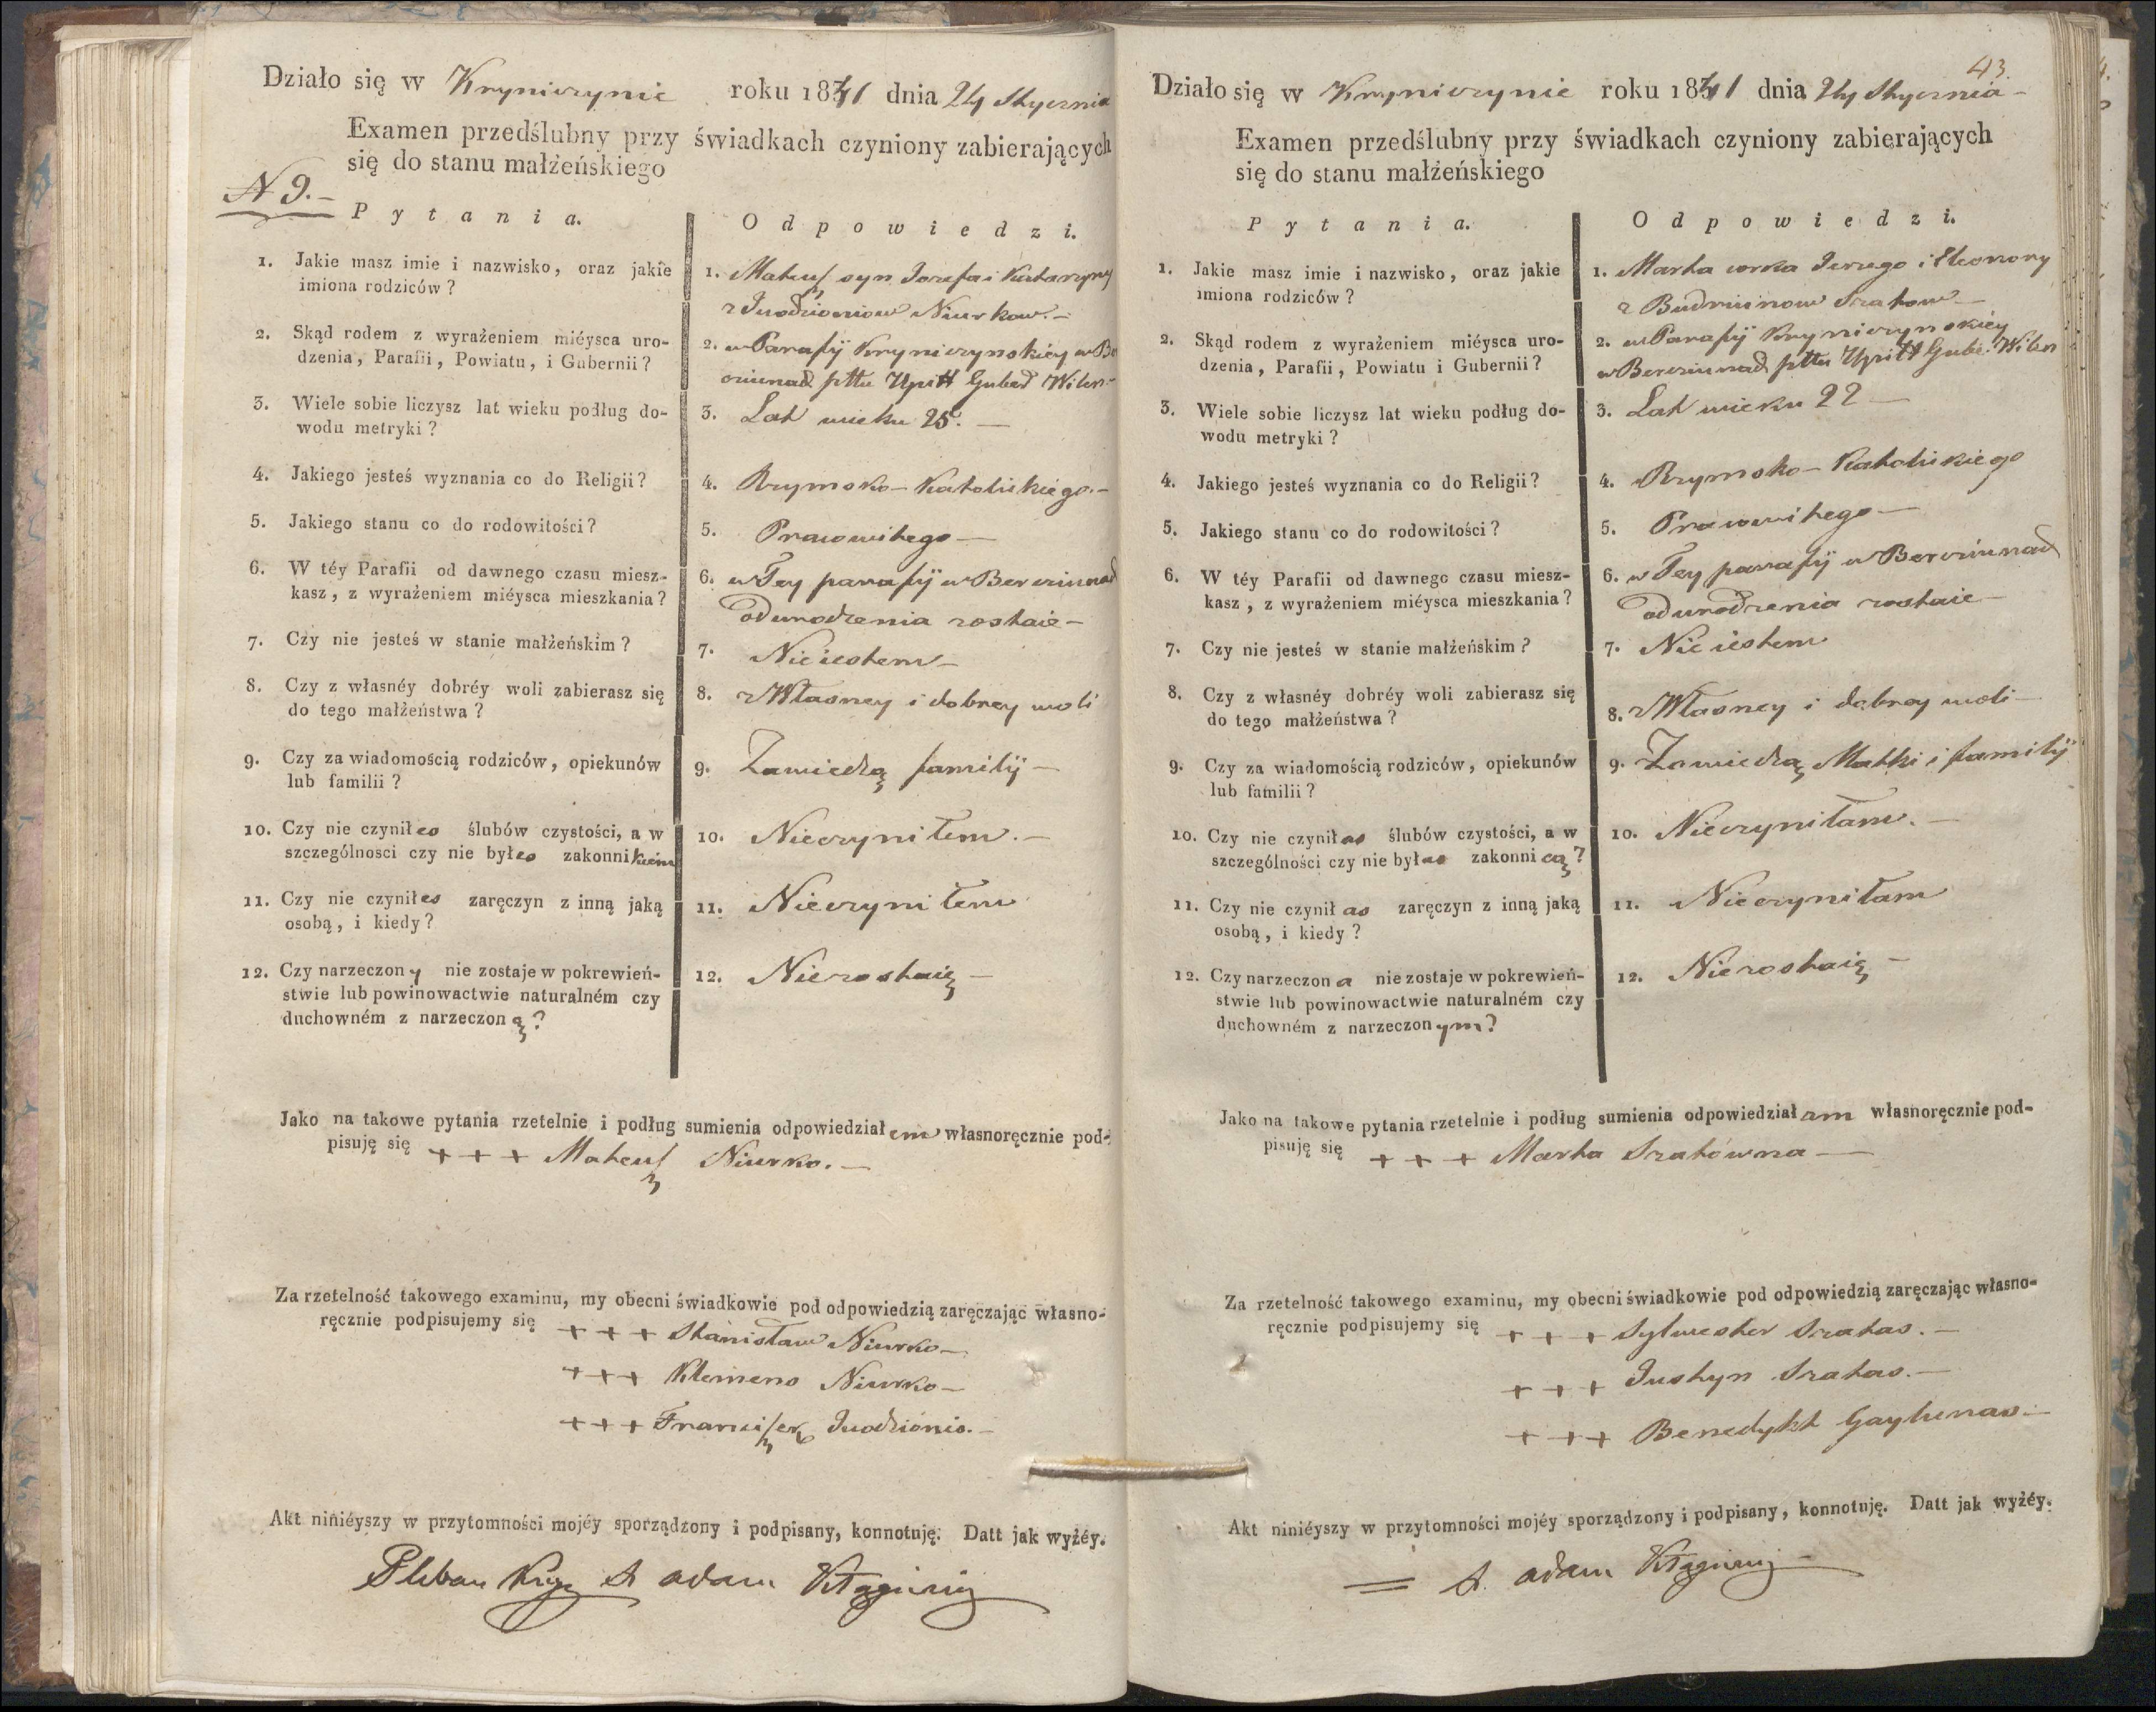 Działo się w Kryniczynie roku 1841 dnia 24 Stycznia
Examen przedślubny przy świadkach czyniony zabierających
się do stanu małżeńskiego
N 9.-
Pytania.
Odpowiedzi.
1. Jakie masz imie i nazwisko, oraz jakie
imiona rodziców?
1. Mateusz syn Jozefa i Katarzyny
z Juodzioniow Niurkow.-
2. Skąd rodem z wyrażeniem miéysca uro-
dzenia, Parafii, Powiatu, i Gubernii?
2. w Parafij Kryniczynskiey w Be
pttu Upitt Wilen-
3. Wiele sobie liczysz lat wieku podług do-
wodu metryki?
3. Lat wieku 25.-
4. Jakiego jesteś wyznania co do Religii?
4. Rzymsko-Katolickiego.-
5. Jakiego stanu co do rodowitości?
5. Prawowitego-
6. W téy Parafii od dawnego czasu miesz-
kasz, z wyrażeniem miéysca mieszkania?
6. w Tey parafij w Berciunad
od urodzenia zostaie-
7. Czy nie jesteś w stanie małżeńskim?
7. Nie iestem-
8. Czy z własnéy dobréy woli zabierasz się
do tego małżeństwa?
8. z Własney i dobrey woli
9. Czy za wiadomością rodziców, opiekunów
lub familii?
9. Zawiedzą familij-
10. Czy nie czyniłes ślubów czystości, a w
szczególnosci czy nie byłes zakonnikiem
10. Nieczyniłem.-
11. Czy nie czyniłes zaręczyn z inną jaką
osobą, i kiedy?
11. Nieczyniłem
12. Czy narzeczony nie zostaje w pokrewień-
stwie lub powinowactwie naturalném czy
duchowném z narzeczoną?
12. Niezostaię-
Jako na takowe pytania rzetelnie i podług sumienia odpowiedziałem własnoręcznie pod-
pisuję się +++ Mateusz Niurko.-
Za rzetelność takowego examinu, my obecni świadkowie pod odpowiedzią zaręczając własno-
ręcznie podpisujemy się +++ Stanisław Niurko-
+++ Klemens Niurko-
+++ Franciszek Juodzionis.-
Akt niniéyszy w przytomności mojéy sporządzony i podpisany, konnotuję. Datt jak wyżéy.
Pleban X Adam
43.
Działo się w Kryniczynie roku 1841 dnia 24 Stycznia-
Examen przedślubny przy świadkach czyniony zabierających
się do stanu małżeńskiego
Pytania.
Odpowiedzi.
1. Jakie masz imie i nazwisko, oraz jakie
imiona rodziców?
1. Marta corka Jerzego i Eleonory
z Budriunow Szatow-
2. Skąd rodem z wyrażeniem miéysca uro-
dzenia, Parafii, Powiatu i Gubernii?
2. w Parafij Kryniczynskiey
w Berciunad pttu Upitt Gube. Wilen
3. Wiele sobie liczysz lat wieku podług do-
wodu metryki?
3. Lat wieku 22-
4. Jakiego jesteś wyznania co do Religii?
4. Rzymsko-Katolickiego
5. Jakiego stanu co do rodowitości?
5. Prawowitego-
6. W téy Parafii od dawnego czasu miesz-
kasz, z wyrażeniem miéysca mieszkania?
6. w Tey parafij w Berciunad
od urodzenia zostaie-
7. Czy nie jesteś w stanie małżeńskim?
7. Nie iestem
8. Czy z własnéy dobréy woli zabierasz się
do tego małżeństwa?
8. z Własney i dobrey woli-
9. Czy za wiadomością rodziców, opiekunów
lub familii?
9. Zawiedzą Matki i familij
10. Czy nie czyniłas ślubów czystości, a w
szczególności czy nie byłas zakonnicą?
10. Nieczyniłam.-
11. Czy nie czyniłas zaręczyn z inną jaką
osobą, i kiedy?
11. Nieczyniłam
12. Czy narzeczona nie zostaje w pokrewień-
stwie lub powinowactwie naturalném czy
duchowném z narzeczonym?
12. Niezostaię-
Jako na takowe pytania rzetelnie i podług sumienia odpowiedziałam własnoręcznie pod-
pisuję się +++ Marta Szatówna-
Za rzetelność takowego examinu, my obecni świadkowie pod odpowiedzią zaręczając własno-
ręcznie podpisujemy się +++ Sylwester Szatas.-
+++ Justyn Szatas.-
+++ Benedykt Gaylunas.-
Akt niniéyszy w przytomności mojéy sporządzony i podpisany, konnotuję. Datt jak wyżéy.
= X. Adam